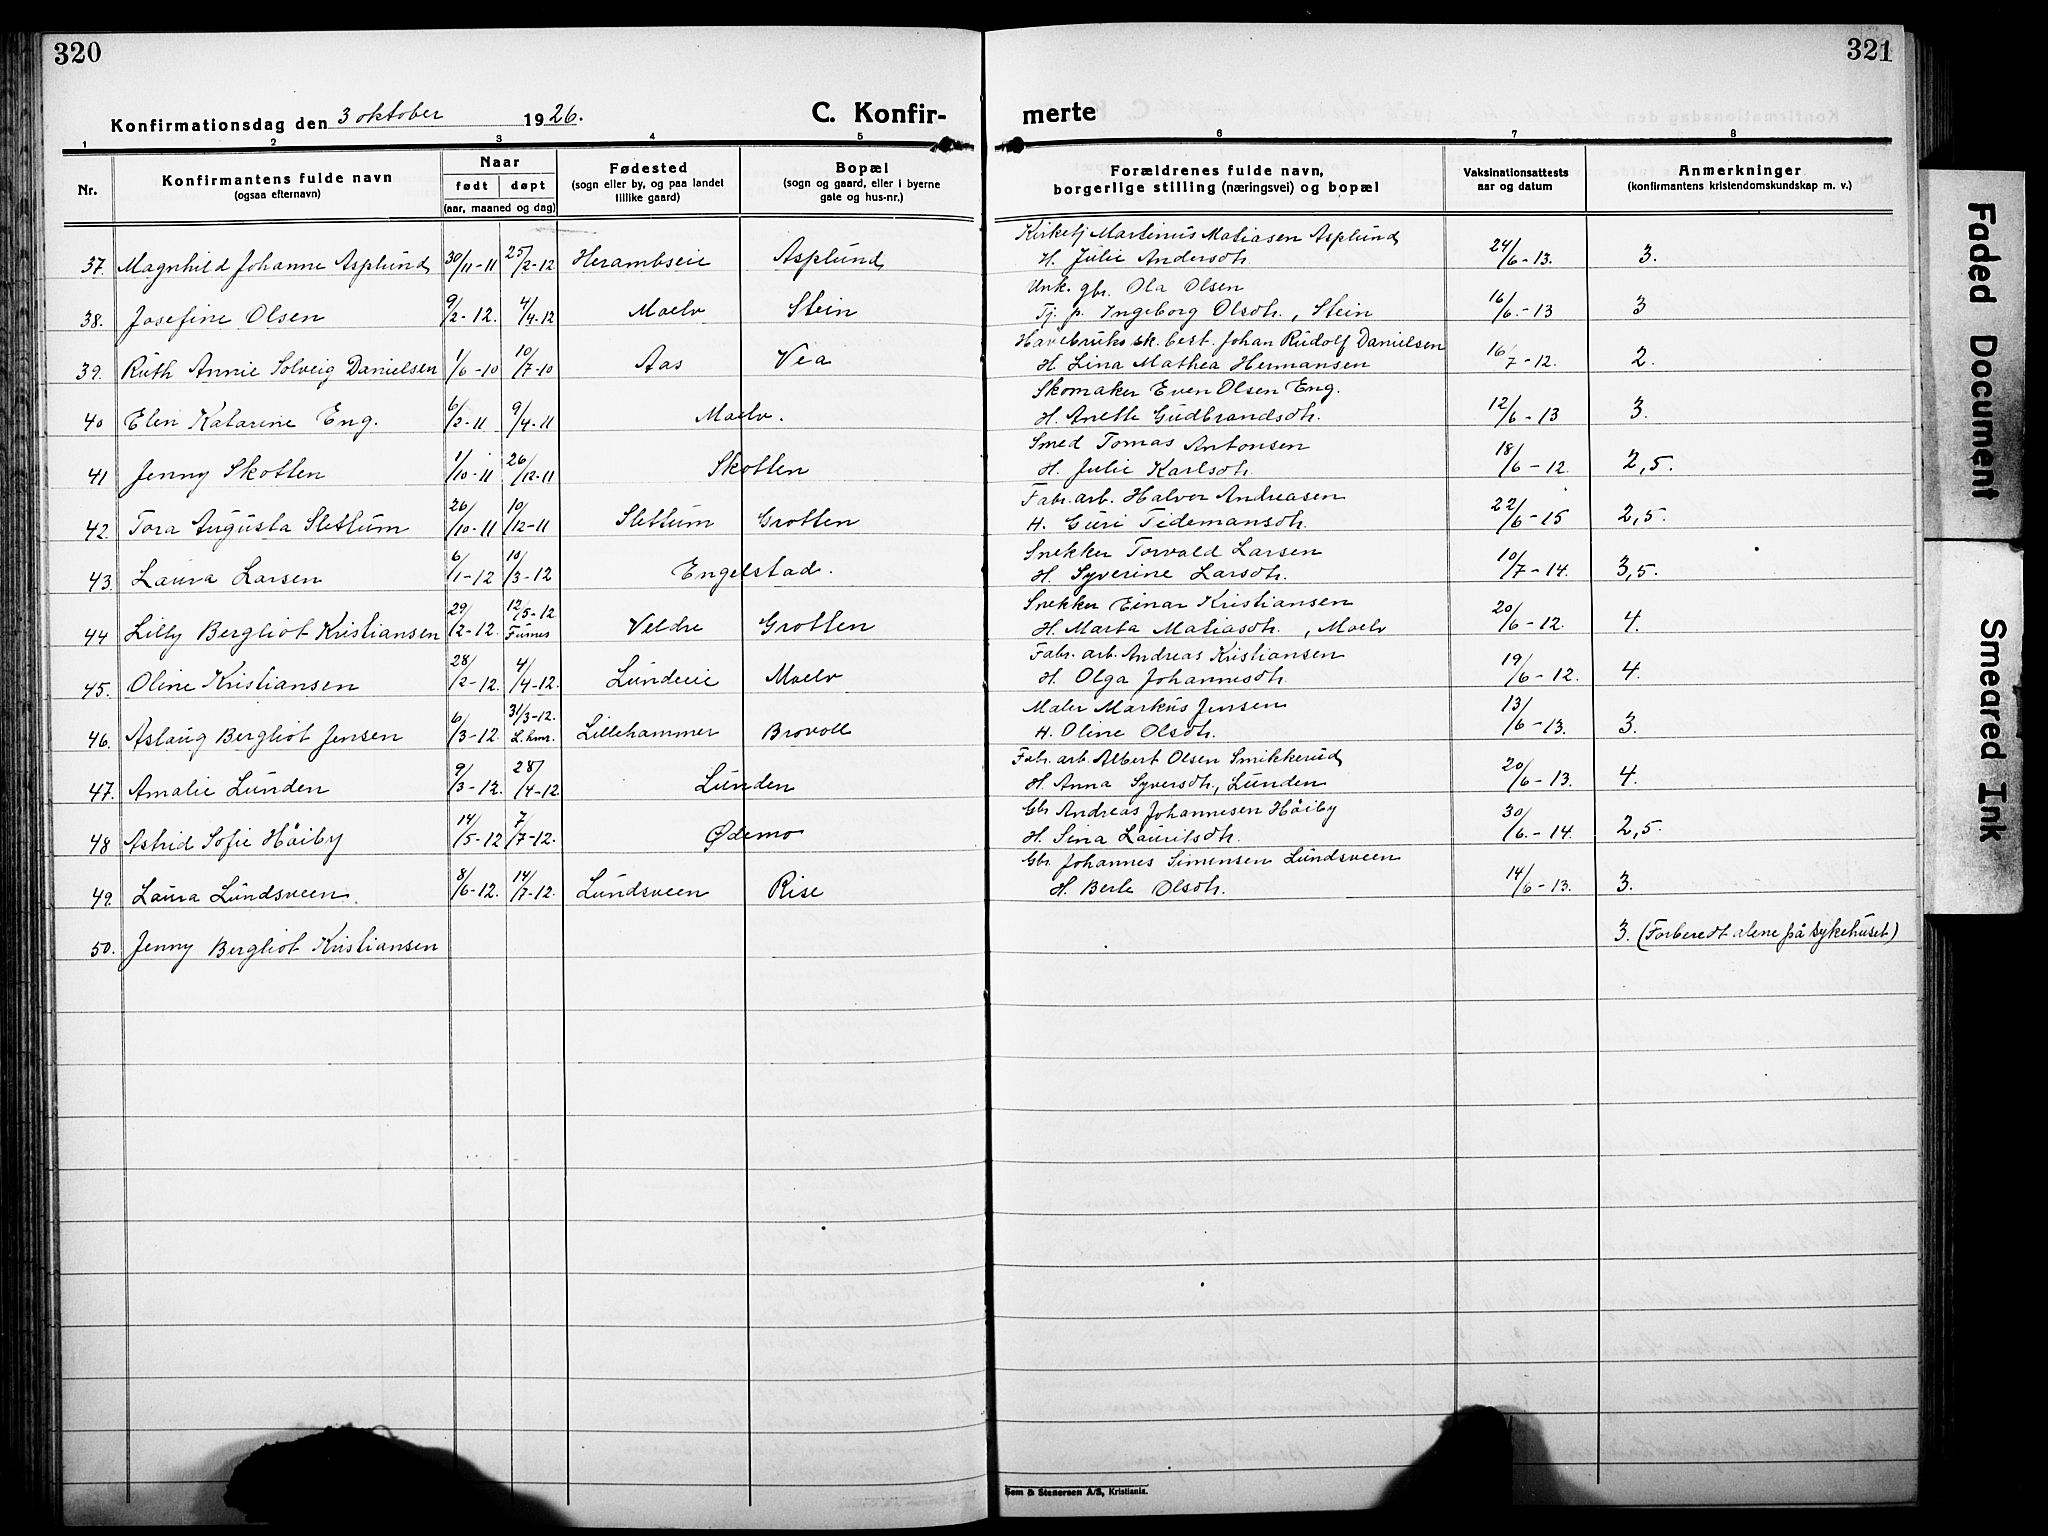 320
321
Konfirmationsdag den 3 oktober 1926.
C. Konfir-
merte
1 2 3 4 5 6 7 8
Nr.
Konfirmantens fulde navn
(ogsaa efternavn)
Naar
født døpt
(aar, maaned og dag)
Fødested
(sogn eller by, og paa landet
tillike gaard)
Bopæl
(sogn og gaard, eller i byerne
gate og hus-nr.)
Forældrenes fulde navn,
borgerlige stilling (næringsvei) og bopæl
Vaksinationsattests
aar og datum
Anmerkninger
(konfirmantens kristendomskundskap m. v.)
Kirketj Martinus Matiasen Asplund
37. Magnhild Johanne Asplund 30/11-11 25/2-12 Herambseie Asplund H. Julie Andersdtr. 24/6-13. 3.
Unk. gbr. Ola Olsen
38. Josefine Olsen 9/2-12. 4/4-12 Moelv Stein Tj. p. Ingeborg Olsdtr., Stein 16/6-13 3
Havebruks sk. best. Johan Rudolf Danielsen
39. Ruth Annie Solveig Danielsen 1/6-10 10/7-10 Aas Vea H Lina Mathea Hermansen 16/7-12. 2.
Skomaker Even Olsen Eng.
40 Elen Katarine Eng. 6/2-11 9/4-11 Moelv. H. Anette Gudbrandsdtr. 12/6-13 3.
Smed Tomas Antonsen
41 Jenny Skotten 1/10-11 26/12-11 Skotten H. Julie Karlsdtr. 18/6-12. 2,5.
Fabr. arb. Halvor Andreasen
42. Tora Augusta Slettum 26/10-11 10/12-11 Slettum Grotten H. Guri Tidemansdtr. 22/6-15 2,5.
Snekker Torvald Larsen
43. Laura Larsen 6/1-12 10/3-12 Engelstad. H. Syverine Larsdtr. 10/7-14. 3,5.
Snekker Einar Kristiansen
44 Lilly Bergliot Kristiansen 29/2-12. 12/5-12 Furnes Veldre Grotten H. Marta Matiasdtr., Moelv 20/6-12. 4.
Fabr. arb. Andreas Kristiansen
45. Oline Kristiansen 28/2-12. 4/4-12. Lundeeie Moelv H. Olga Johannesdtr. 19/6-12. 4.
Maler Markus Jensen
46. Aslaug Bergliot Jensen 6/3-12. 31/3-12. L.hmr. Lillehammer Brovoll H. Oline Olsdtr. 13/6-13. 3.
Fabr. arb. Albert Olsen Smikkerud
47. Amalie Lunden 9/3-12. 28/4-12 Lunden H. Anna Syversdtr., Lunden 20/6-13. 4.
Gbr Andreas Johannesen Håiby
48 Astrid Sofie Håiby 14/5-12 7/7-12. Ødemo H. Sina Lauritsdtr. 30/6-14. 2,5.
Gbr. Johannes Simensen Lundsveen
49. Laura Lundsveen. 8/6-12. 14/7-12. Lundsveen Rise H. Berte Olsdtr. 14/6-13. 3.
50. Jenny Bergliot Kristiansen 3. (Forberedt alene på sykehuset)
Sem & Stenersen A/S, Kristiania.
Faded Document
Smeared Ink